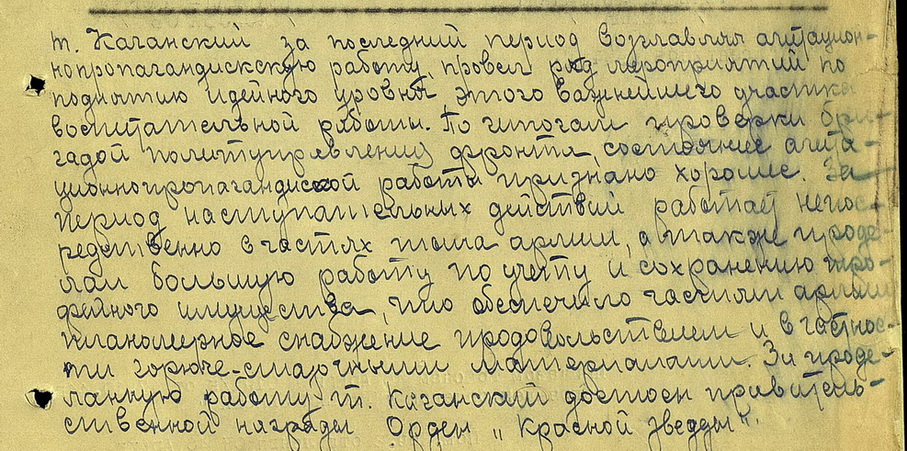 т. Каганский за последний период возглавлял агитацион-
нопропагандискскую работу, провел ряд мероприятий по
поднятию идейного уровня, этого важнейшего участка
воспитательной работы. По итогам проверки бри-
гадой политуправления фронта, состояние агита-
ционнопропагандиской работы признано хорошее. За
период наступательных действий работает непос-
редственно в частях тыла армии, а также проде-
лал большую работу по учету и сохранению тро-
фейного имущества, что обеспечило частями армии
планомерное снабжение продовольствием и в частнос-
ти горюче-смазочными материалами. За проде-
ланную работу т. Каганский достоен правитель-
ственной награды Орден „Красной звезды".